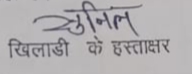 सुनिल
खिलाडी के हस्ताक्षर